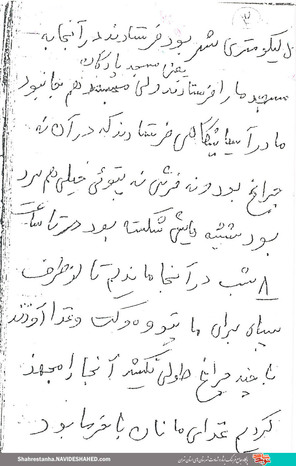 ۲
کیلومتری شهر بود فرستادند در آنجا به
یعنی مسجد پادگان
مسجد ما را فرستادند ولی مسجد هم جا نبود
ما در آسایشگاهی فرستادند که در آن نه
چراغ بود و نه فرشی نه پتوئی خیلی هم سرد
بود شیشه هایش شکسته بود حتی تا ساعت
۸ شب در آنجا ماندیم تا از طرف
سپاه برای ما پتو و موکت و غذا آوردند
با چند چراغ طولی نکشید آنجا را مجهز
کردیم غذای ما نان با خرما بود
Shahrestanha.NAVIDESHAHED.com